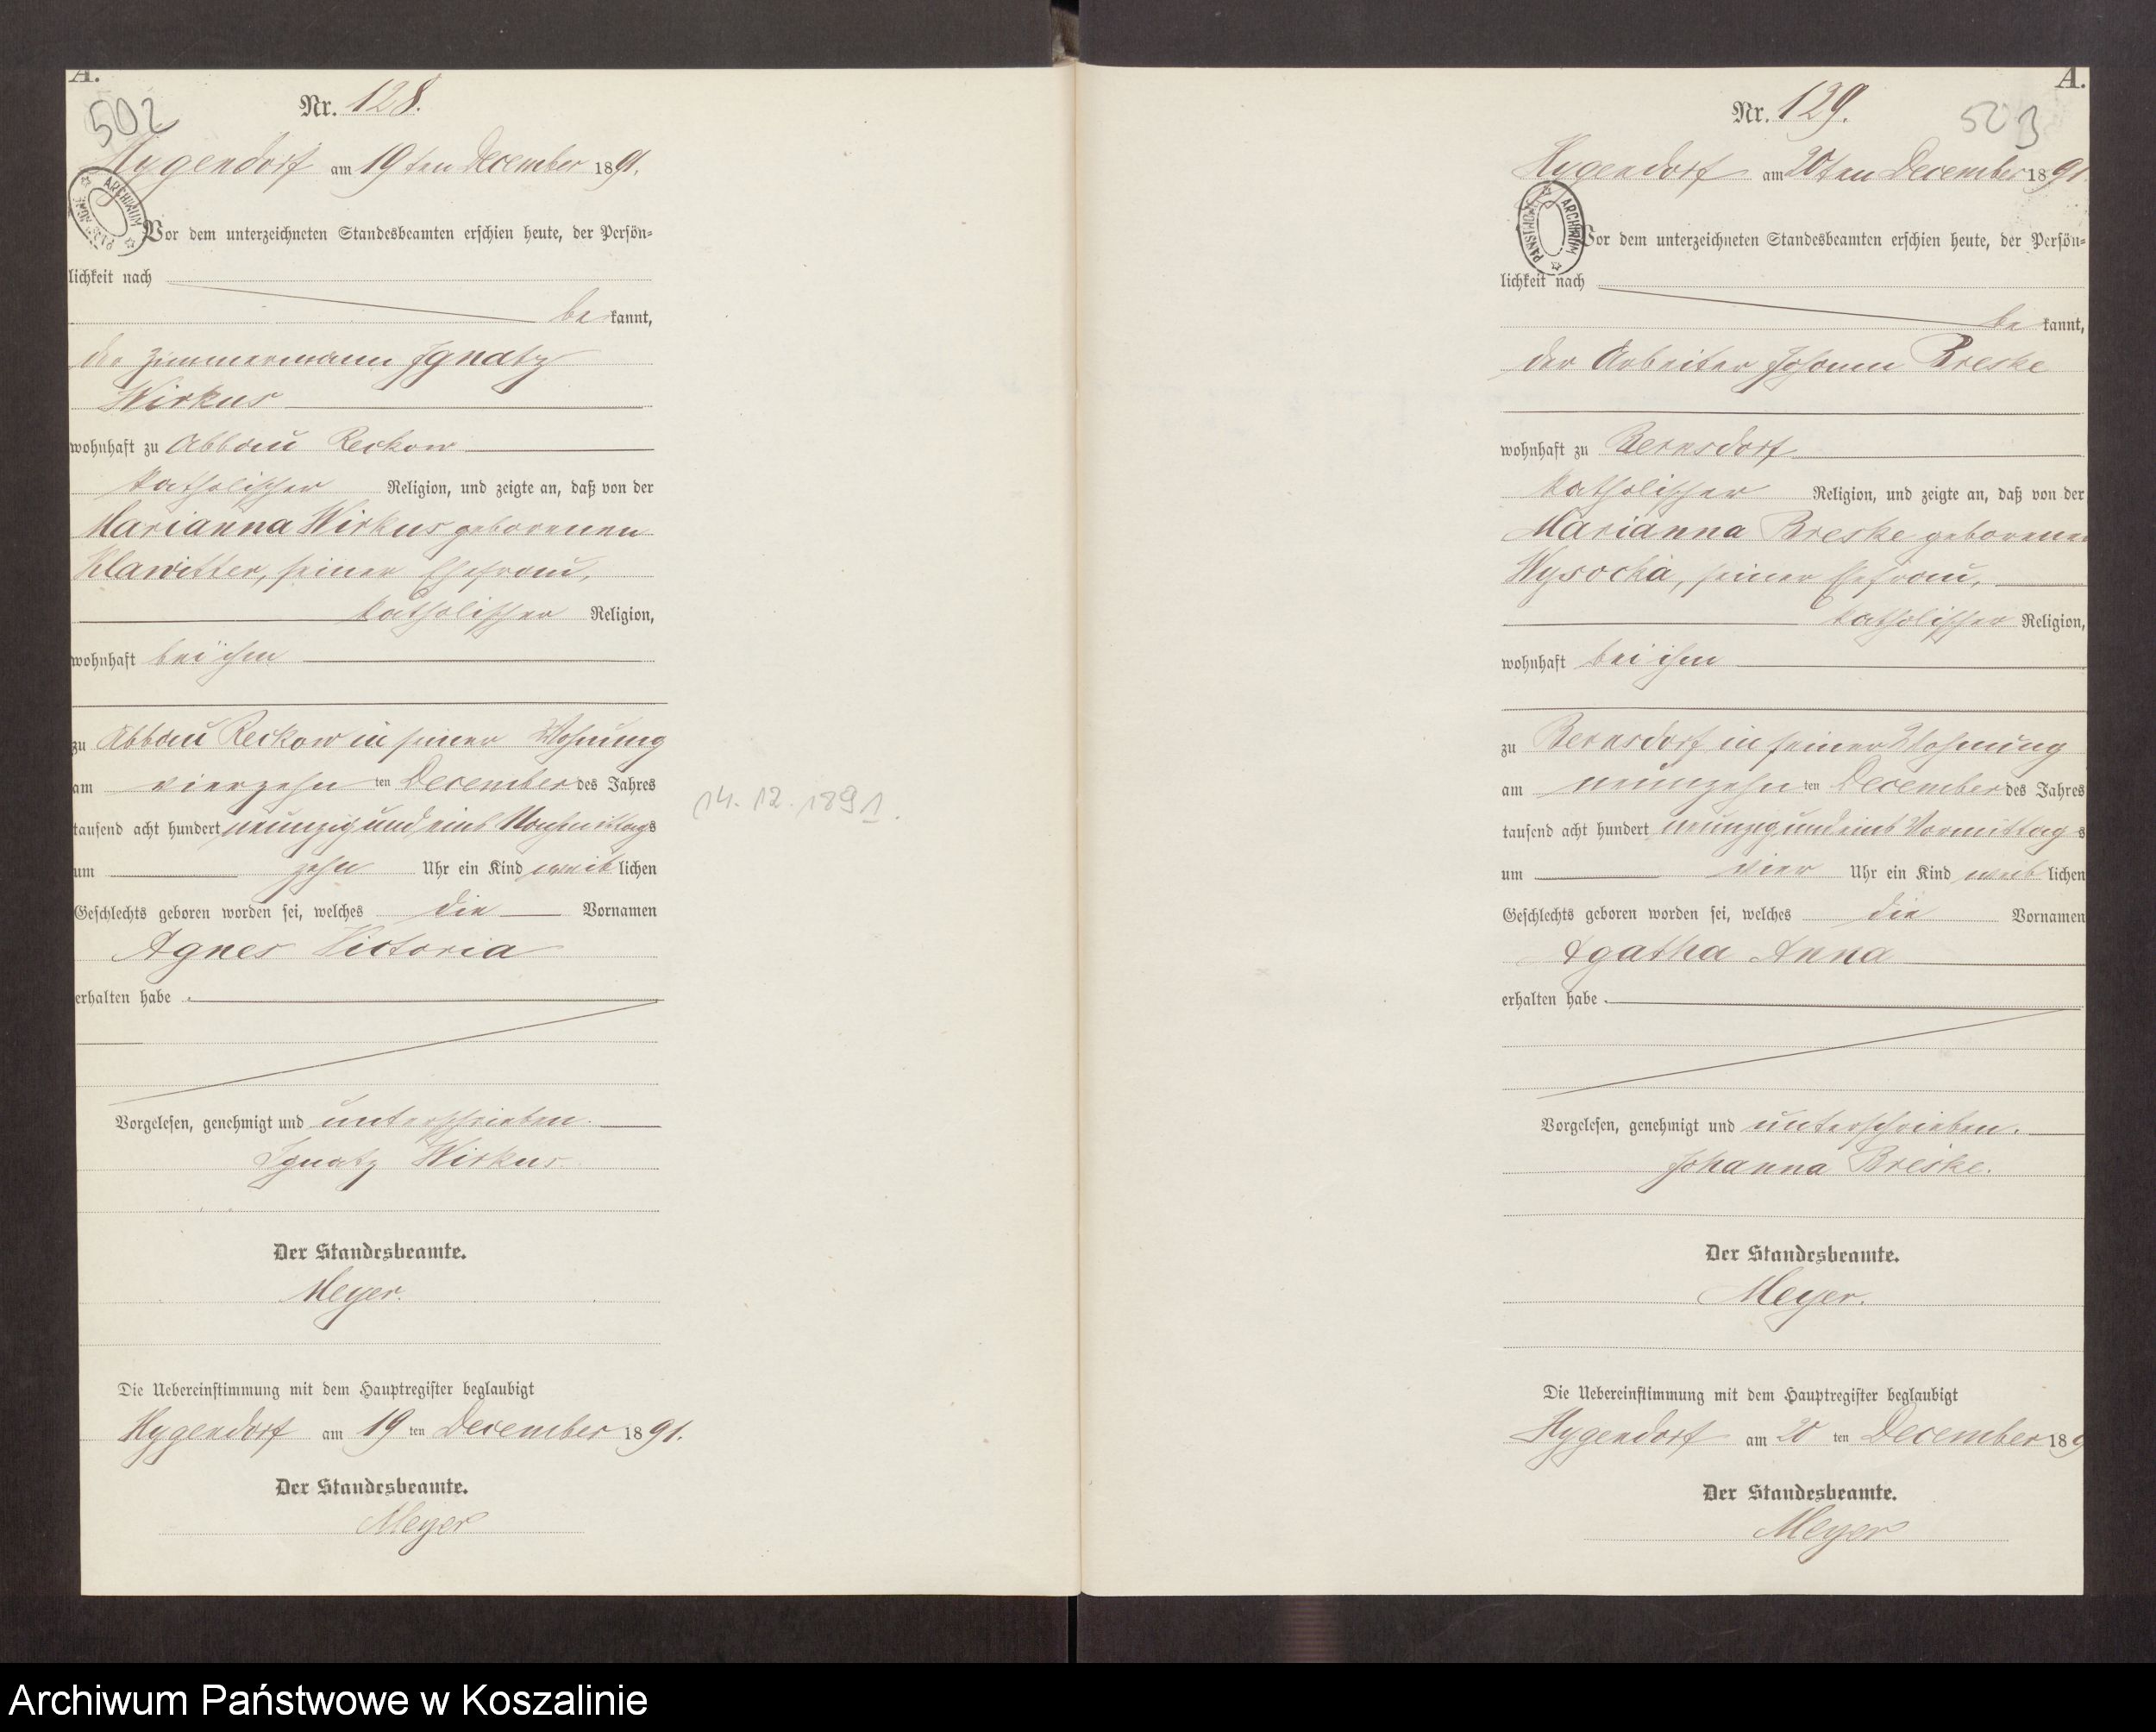 A.
502
Nr. 128.
Hygendorf am 19ten December 1891.
PAŃSTWOWE ARCHIWUM
Vor dem unterzeichneten Standesbeamten erschien heute, der Persön-
lichkeit nach
bekannt,
der Zimmermann Ignatz
Wirkus
wohnhaft zu Abbau Reckow
katholischer Religion, und zeigte an, daß von der
Marianna Wirkus geborenen
Klawitter, seiner Ehefrau,
katholischer Religion,
wohnhaft bei ihm
zu Abbau Reckow in seiner Wohnung
am vierzehn ten December des Jahres
tausend acht hundert neunzig und eins Nachmittags
um zehn Uhr ein Kind weiblichen
Geschlechts geboren worden sei, welches die Vornamen
Agnes Victoria
erhalten habe.
Vorgelesen, genehmigt und unterschrieben.
Ignatz Wirkus.
Der Standesbeamte.
Meyer.
Die Uebereinstimmung mit dem Hauptregister beglaubigt
Hygendorf am 19 ten December 1891.
Der Standesbeamte.
Meyer
14. 12. 1891.
A.
Nr. 129.
Hygendorf am 20ten December 1891
PAŃSTWOWE ARCHIWUM
Vor dem unterzeichneten Standesbeamten erschien heute, der Persön-
lichkeit nach
bekannt,
der Arbeiter Johann Breske
wohnhaft zu Bernsdorf
katholischer Religion, und zeigte an, daß von der
Marianna Breske geborenen
Wysocka, seiner Ehefrau,
katholischer Religion,
wohnhaft bei ihm
zu Bernsdorf in seiner Wohnung
am neunzehn ten December des Jahres
tausend acht hundert neunzig und eins Vormittags
um vier Uhr ein Kind weiblichen
Geschlechts geboren worden sei, welches die Vornamen
Agatha Anna
erhalten habe.
Vorgelesen, genehmigt und unterschrieben.
Johanna Breske.
Der Standesbeamte.
Meyer.
Die Uebereinstimmung mit dem Hauptregister beglaubigt
Hygendorf am 20 ten December 189
Der Standesbeamte.
Meyer
Archiwum Państwowe w Koszalinie